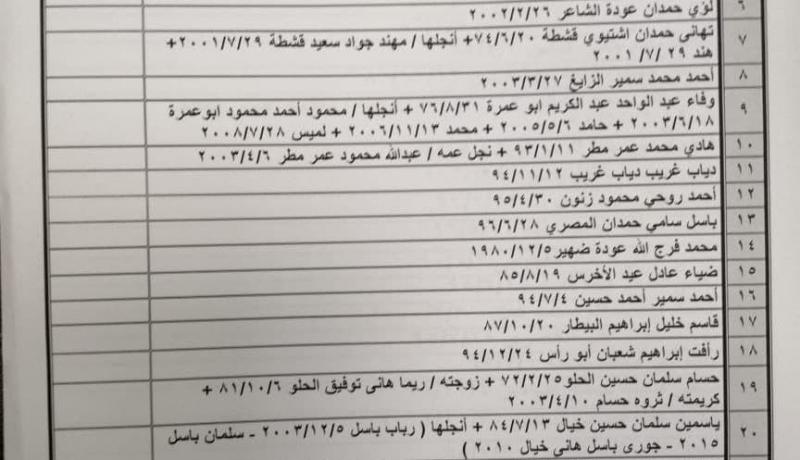 ٦ لؤي حمدان عودة الشاعر ٢٠٠٢/٢/٢٦
٧ تهانى حمدان اشتيوي قشطة ٧٤/٦/٢٠+ أنجلها / مهند جواد سعيد قشطة ٢٠٠١/٧/٢٩+
هند ٢٩ /٧/ ٢٠٠١
٨ أحمد محمد سمير الزايغ ٢٠٠٣/٣/٢٧
٩ وفاء عبد الواحد عبد الكريم ابو عمرة ٧٦/٨/٣١ + أنجلها / محمود أحمد محمود ابو عمرة
٢٠٠٣/٦/١٨ + حامد ٢٠٠٥/٥/٦ + محمد ٢٠٠٦/١١/١٣ + لميس ٢٠٠٨/٧/٢٨
١٠ هادي محمد عمر مطر ٩٣/١/١١ + نجل عمه / عبدالله محمود عمر مطر ٢٠٠٣/٤/٦
١١ دياب غريب دياب غريب ٩٤/١١/١٢
١٢ أحمد روحي محمود زنون ٩٥/٤/٣٠
١٣ باسل سامي حمدان المصري ٩٦/٦/٢٨
١٤ محمد فرج الله عودة ضهير ١٩٨٠/١٢/٥
١٥ ضياء عادل عيد الأخرس ٨٥/٨/١٩
١٦ أحمد سمير أحمد حسين ٩٤/٧/٤
١٧ قاسم خليل إبراهيم البيطار ٨٧/١٠/٢٠
١٨ رأفت إبراهيم شعبان أبو رأس ٩٤/١٢/٢٤
١٩ حسام سلمان حسين الحلو ٧٢/٢/٢٥ + زوجته / ريما هانى توفيق الحلو ٨١/١٠/٦ +
كريمته / ثروه حسام ٢٠٠٣/٤/١٠
٢٠ ياسمين سلمان حسين خيال ٨٤/٧/١٣ + أنجلها ( رباب باسل ٢٠٠٣/١٢/٥ - سلمان باسل
٢٠١٥ - جورى باسل هاني خيال ٢٠١٠ )